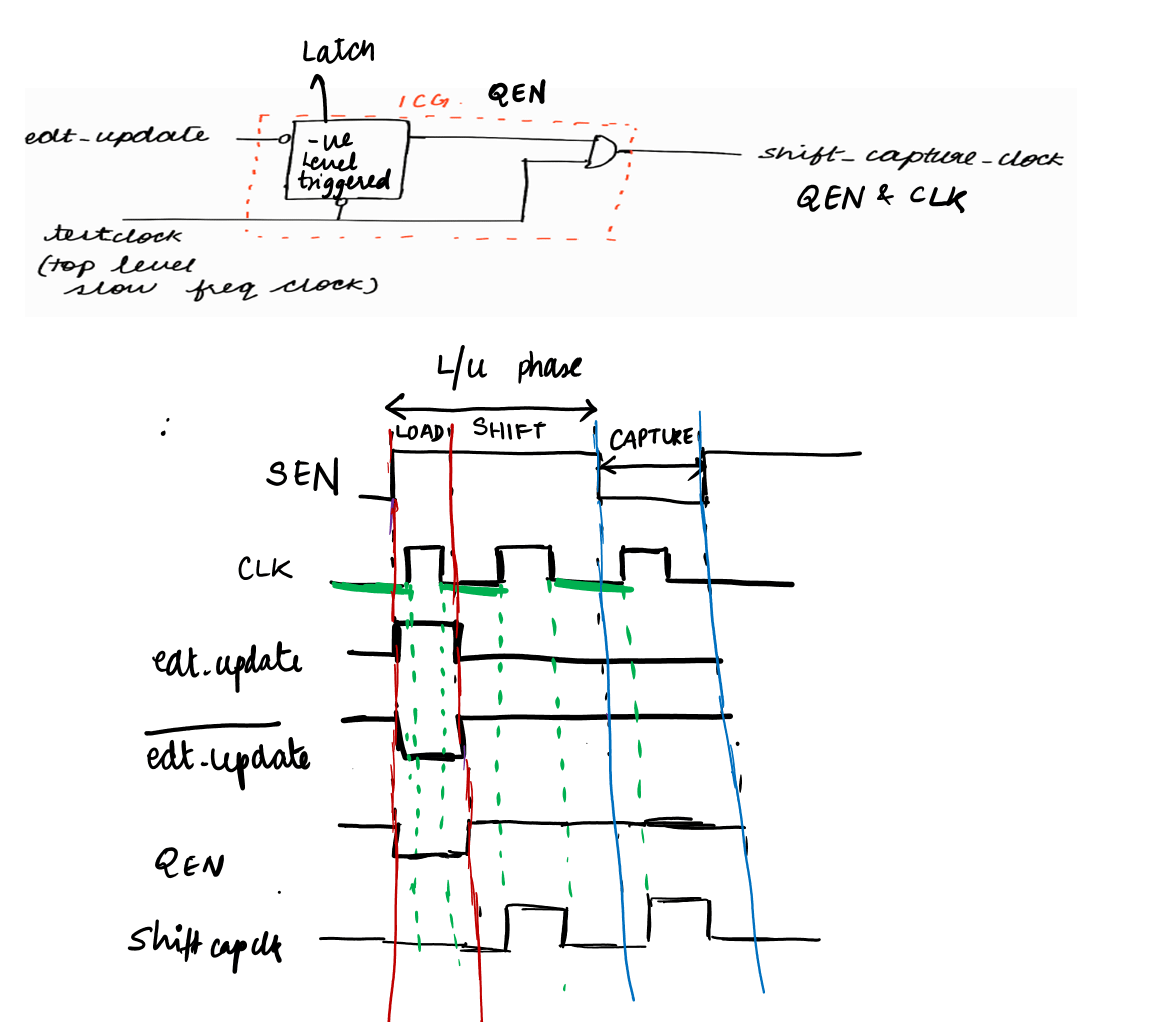 Latch
ICG. QEN
edt_update
-ve
Level
triggered
shift_capture_clock
QEN & CLK
testclock
(top level
slow freq clock)
L/U phase
:
LOAD SHIFT CAPTURE
SEN
CLK
edt_update
edt_update
QEN
Shift cap clk